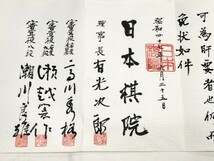 可為師要者也仍而
免状如件
昭和四十年月二十五日
日本棋院
理事長 有光次郎
審査役 高川秀格
審査役 瀬越憲作
審査役八段 瀬川良雄